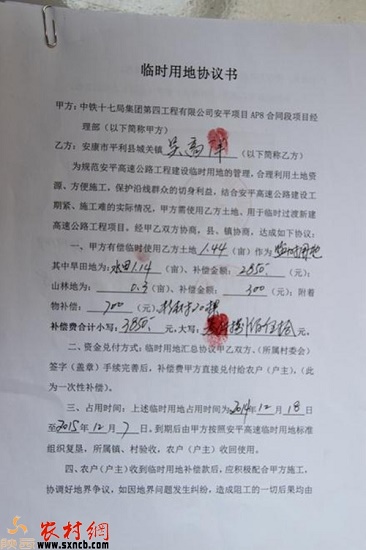 临时用地协议书
甲方：中铁十七局集团第四工程有限公司安平项目AP8合同段项目经
理部（以下简称甲方）
乙方：安康市平利县城关镇 吴高 （以下简称乙方）
为规范安平高速公路工程建设临时用地的管理，合理利用土地资
源、方便施工，保护沿线群众的切身利益，结合安平高速公路建设工
期紧、施工难的实际情况，甲方需使用乙方土地，用于临时过渡新建
高速公路工程项目，经甲乙双方协商，县、镇协商，达成如下协议：
一、甲方有偿临时使用乙方土地 1.44（亩）作为 临时用地
其中旱田地为：水田1.14（亩）、补偿金额：2850（元），
山林地为 0.3（亩）、补偿金额：300（元）；附着
物补偿：700（元），20棵
补偿费合计小写：3850元，大写：叁仟捌佰伍拾元。
二、资金兑付方式：临时用地汇总协议甲乙双方、（所属村委会）
签字（盖章）手续完善后，补偿费甲方直接兑付给农户（户主），（此
为一次性补偿）。
三、占用时间：上述临时用地占用时间为2014年12月18日
至2015年12月7日，到期后由甲方按照安平高速临时用地标准
组织复垦，所属镇、村验收，农户（户主）收回使用。
四、农户（户主）收到临时用地补偿款后，应积极配合甲方施工，
协调好地界争议，如因地界问题发生纠纷，造成阻工的一切后果均由
陕西 农村網
www.sxncb.com